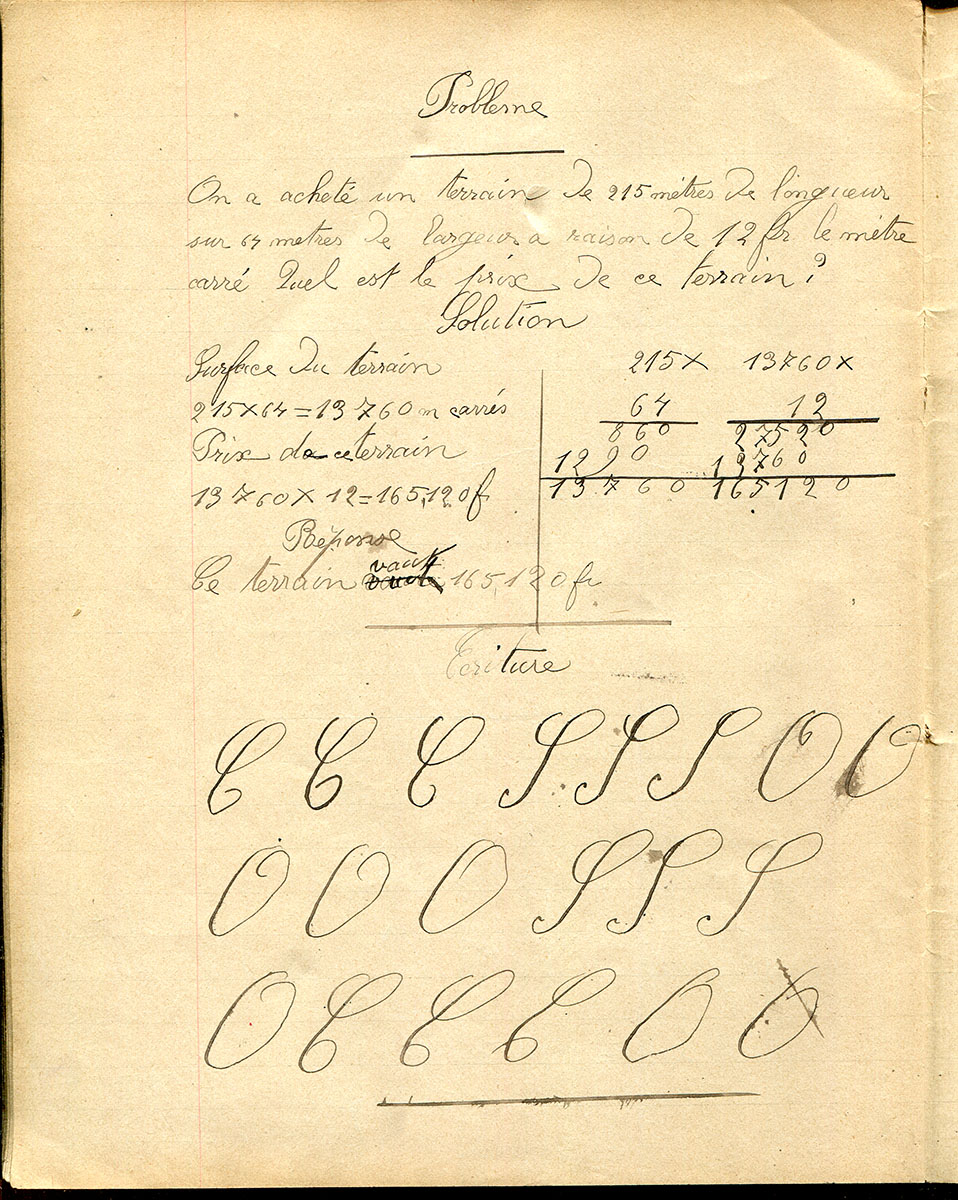 Problème
On a acheté un terrain de 215 mètres de longueur
sur 64 metres de largeur a raison de 12 fr le mètre
carré Quel est le prix de ce terrain ?
Solution
Surface du terrain
215 × 64 = 13 760 m carrés
Prix de ce terrain
13 760 × 12 = 165,120 f
Réponse
Ce terrain vaut 165,120 fr
215 × 13760 ×
64 12
860 27520
1290 13760
13760 165120
Ecriture
C C C S S S O O
O O O S S S
O C C C O O